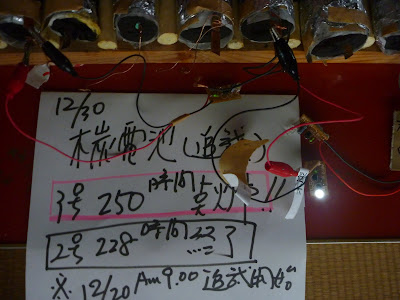 12/30
木炭電池(追試)
1号 250時間点灯中!!
2号 228時間…了
※12/20 Am9.00 追試開始